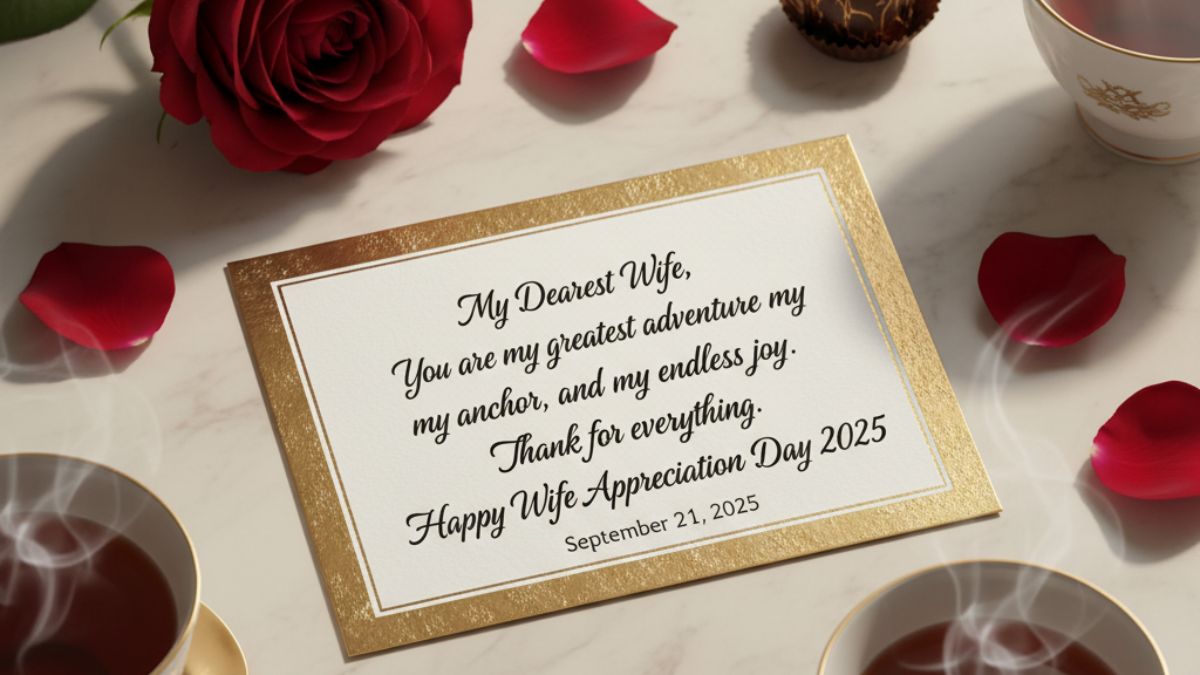 My Dearest Wife,
You are my greatest adventure my
my anchor, and my endless joy.
Thank for everything.
Happy Wife Appreciation Day 2025
September 21, 2025